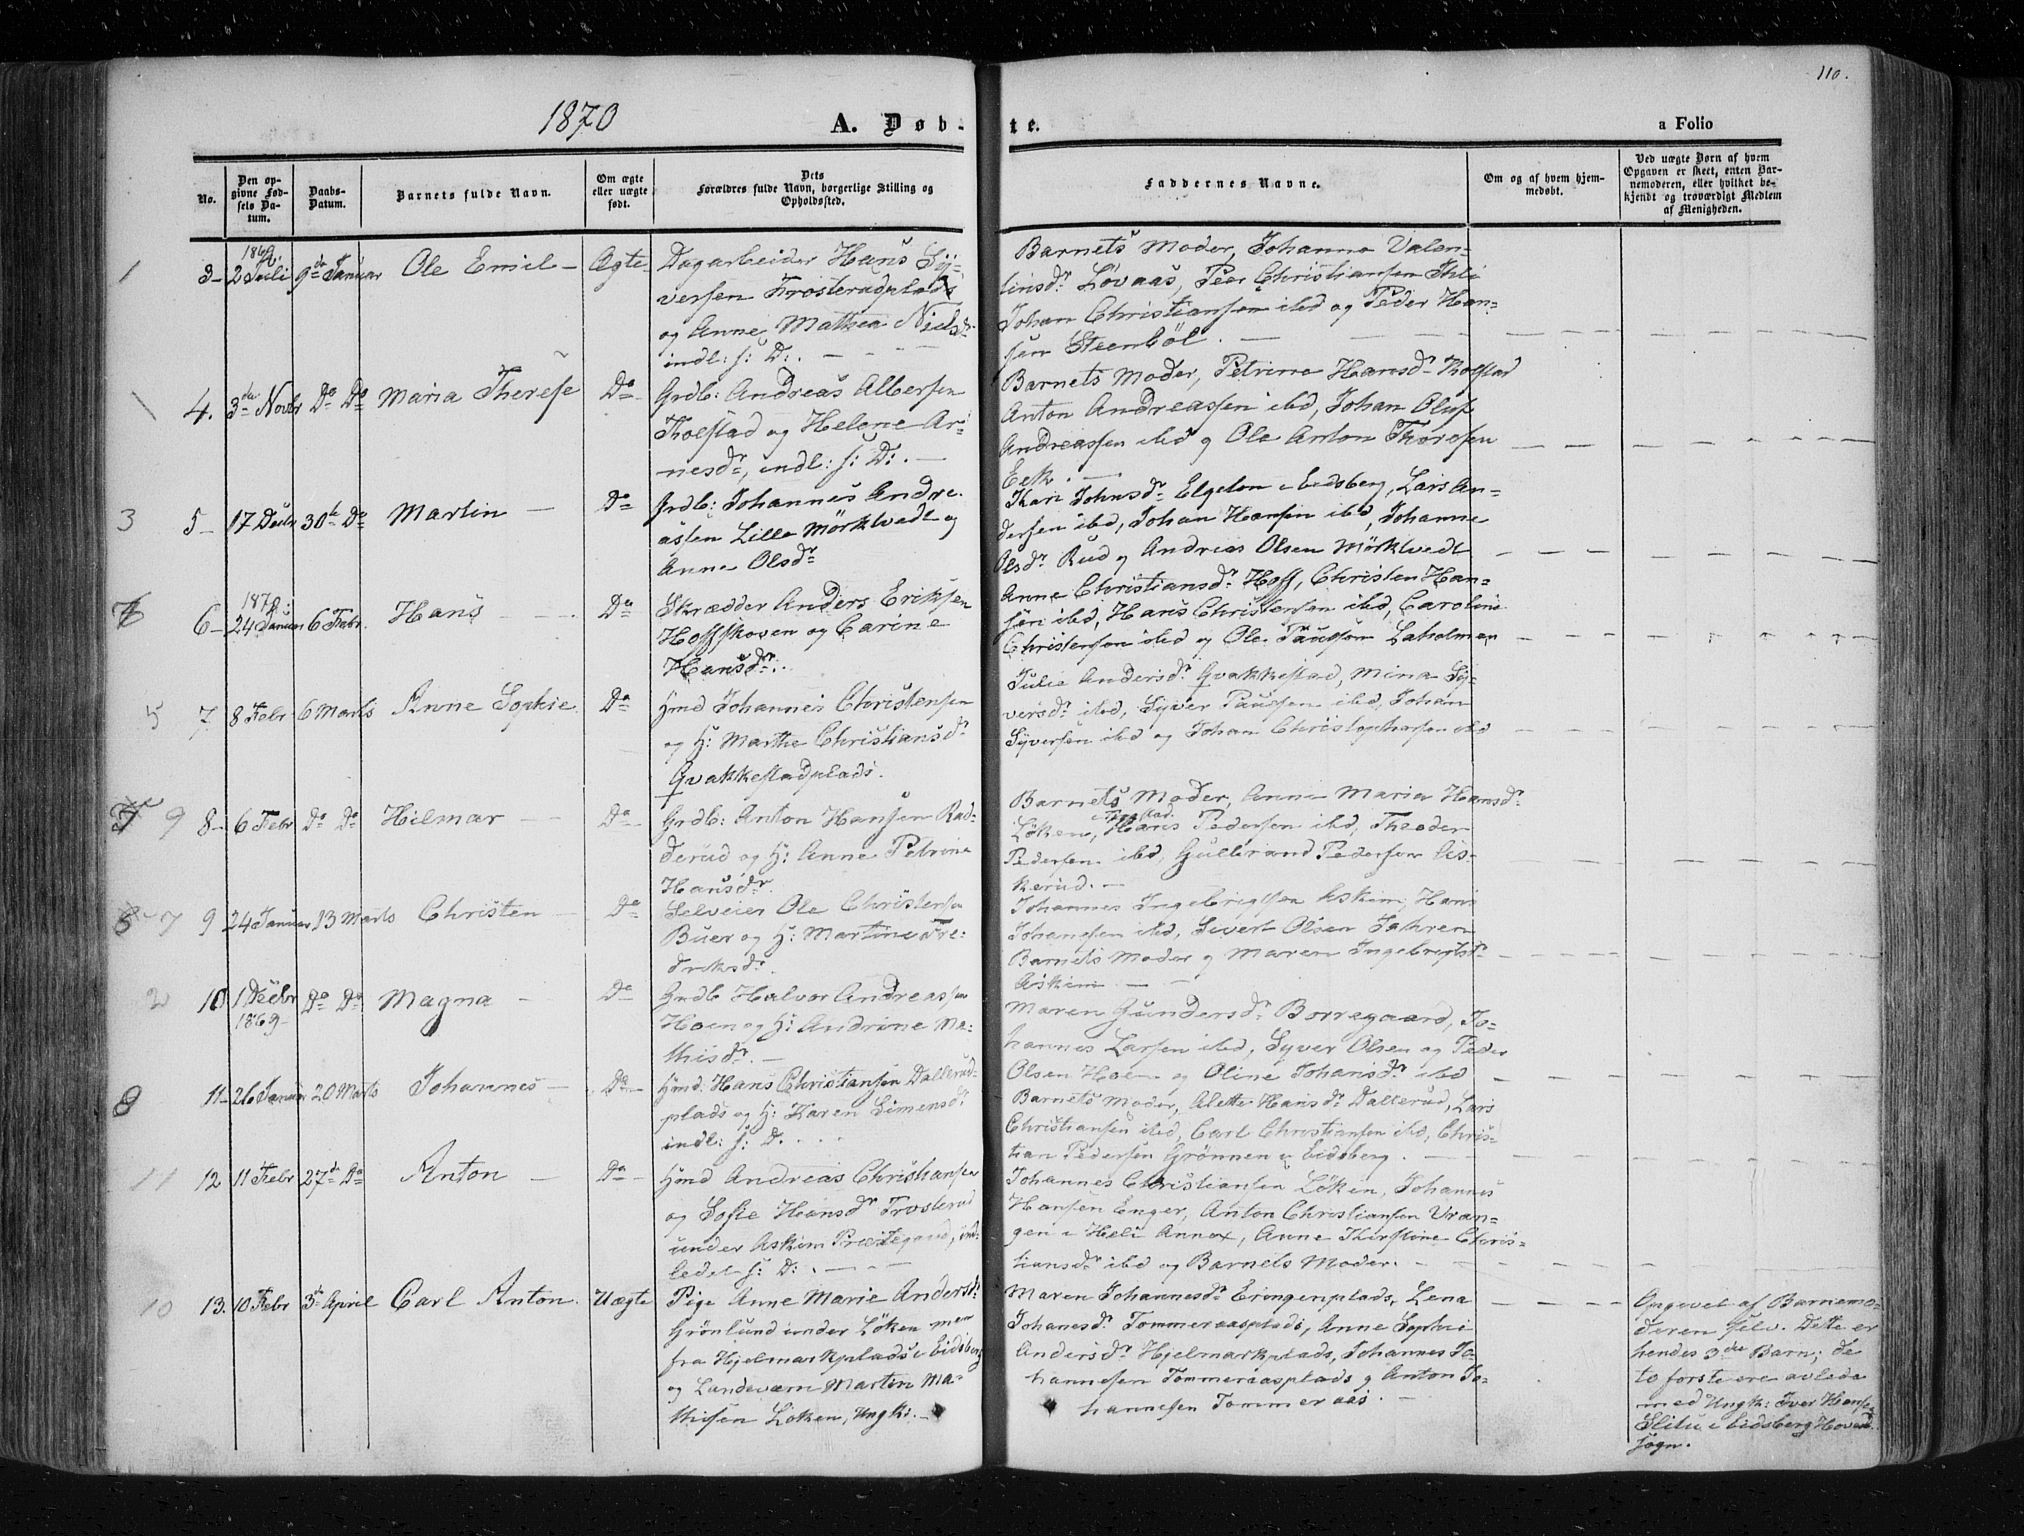 110.
1870
A. Døb-
te.
a Folio
No.
Den op-
givne Fød-
sels Da-
tum.
Daabs-
Datum.
Barnets fulde Navn.
Om ægte
eller uægte
født.
Dets
Forældres fulde Navn, borgerlige Stilling og
Opholdssted.
Faddernes Navne.
Om og af hvem hjem-
medøbt.
Ved uægte Børn af hvem
Opgaven er skeet, enten Bar-
nemoderen, eller hvilket be-
kjendt og troværdigt Medlem
af Menigheden.
1
3- 1869 2 Juli 9de Januar Ole Emil - Ægte
Dagarbeider Hans Sy-
versen Trosterudplads
og Anne Mathea Nielsdr
indl: s: D:. -
Barnets Moder, Johanne Valen-
tinsdr Løvaas, Peer Christiansen Ihli
Johan Christiansen ibd og Peder Han-
sen Steenböl. -
4. 3de Novbr Do Do Maria Therese Do
Grdb: Andreas Albersen
Tholstad og Helene Ar-
nesdr, indl: s: D:. -
Barnets Moder, Petrine Hansdr Tholstad
Anton Andreassen ibd, Johan Oluf
Andreassen ibd og Ole Anton Thoresen
Eek. -
3
5- 17 Decbr 30te Do Martin - Do
Grdb: Johannes Andre-
assen Lille Mörktvedt og
Anne Olsdr
Kari Johnsdr Elgeton i Eidsberg, Lars An-
dersen ibd, Johan Hansen ibd, Johanne
Olsdr Rud og Andreas Olsen Mörktvedt
6- 1870 24 Januar 6 Febr. Hans - Do
Skrædder Anders Eriksen
Hoffskoven og Carine
Hansdr.
Anne Christiansdr Hoff, Christen Han-
sen ibd, Hans Christensen ibd, Caroline
Christensen ibd og Ole Paulsen Laholmen
5
7. 8 Febr 6 Marts Anne Sophie Do
Hmd Johannes Christensen
og H: Marthe Christiansdr
Qvakkestadplads.
Julie Andersdr Qvakkestad, Mina Sy-
versdr ibd, Syver Paulsen ibd, Johan
Syversen ibd og Johan Christophersen ibd
9
8- 6 Febr Do Do Hilmar - Do
Grdb: Anton Hansen Rud-
derud og H: Anne Petrine
Hansdr.
Barnets Moder, Anne Maria Hansdr
Løken, Hans Pedersen ibd, Theodor
Pedersen ibd, Gulbrand Pedersen As-
kerud. -
7
9 24 Januar 13 Marts Christen - Do
Selveier Ole Christensen
Buer og H: Martine Fre-
driksdr.
Johannes Ingebrigtsen Askim, Hans
Johansen ibd, Sivert Olsen Sahren
Barnets Moder og Maren Ingebrigtsdr
Askim -
2
10 1 Decbr 1869 Do Do Magna - Do
Grdb Halvor Andreassen
Hoen og H: Andrine Ma-
thisdr. -
Maren Gundersdr Borregaard, Jo-
hannes Larsen ibd, Syver Olsen og Peder
Olsen Hoen og Oline Johansdr ibd
8
11- 26 Januar 20 Marts Johannes - Do
Hmd: Hans Christiansen Dallerud-
plads og H: Karen Simensdr
indl: s: D. . . .
Barnets Moder, Alette Hansdr Dallerud, Lars
Christiansen ibd, Carl Christiansen ibd, Chris-
tian Pedersen Grönnen i Eidsberg.
11
12 11 Febr 27de Do Anton - Do
Hmd Andreas Christiansen
og Sofie Hansdr Trosterud
under Askim Præstegaard, ind-
ledet s: D:. -
Johannes Christiansen Löken, Johannes
Hansen Enger, Anton Christiansen Vran-
gen i Heli Annex, Anne Kirstine Chris-
tiansdr ibd og Barnets Moder.
10
13. 10 Febr 3de April Carl Anton. Uægte
Pige Anne Marie Andersdr
Grönlund under Löken men
fra Hjelmarkplads i Eidsberg
og Landeværn Martin Ma-
thisen Løken, Ungk:. -
Maren Johannesdr Eringenplads, Lena
Johansdr Tommeraasplads, Anne Sophie
Andersdr Hjelmarkplads, Johannes Jo-
hannesen Tommeraasplads og Anton Jo-
hannesen Tommeraas. -
Opgivet af Barnemo-
deren selv. Dette er
hendes 3die Barn; de
to første ere avlede
med Ungk: Iver Hansen
Slitu i Eidsberg Hoved-
sogn.